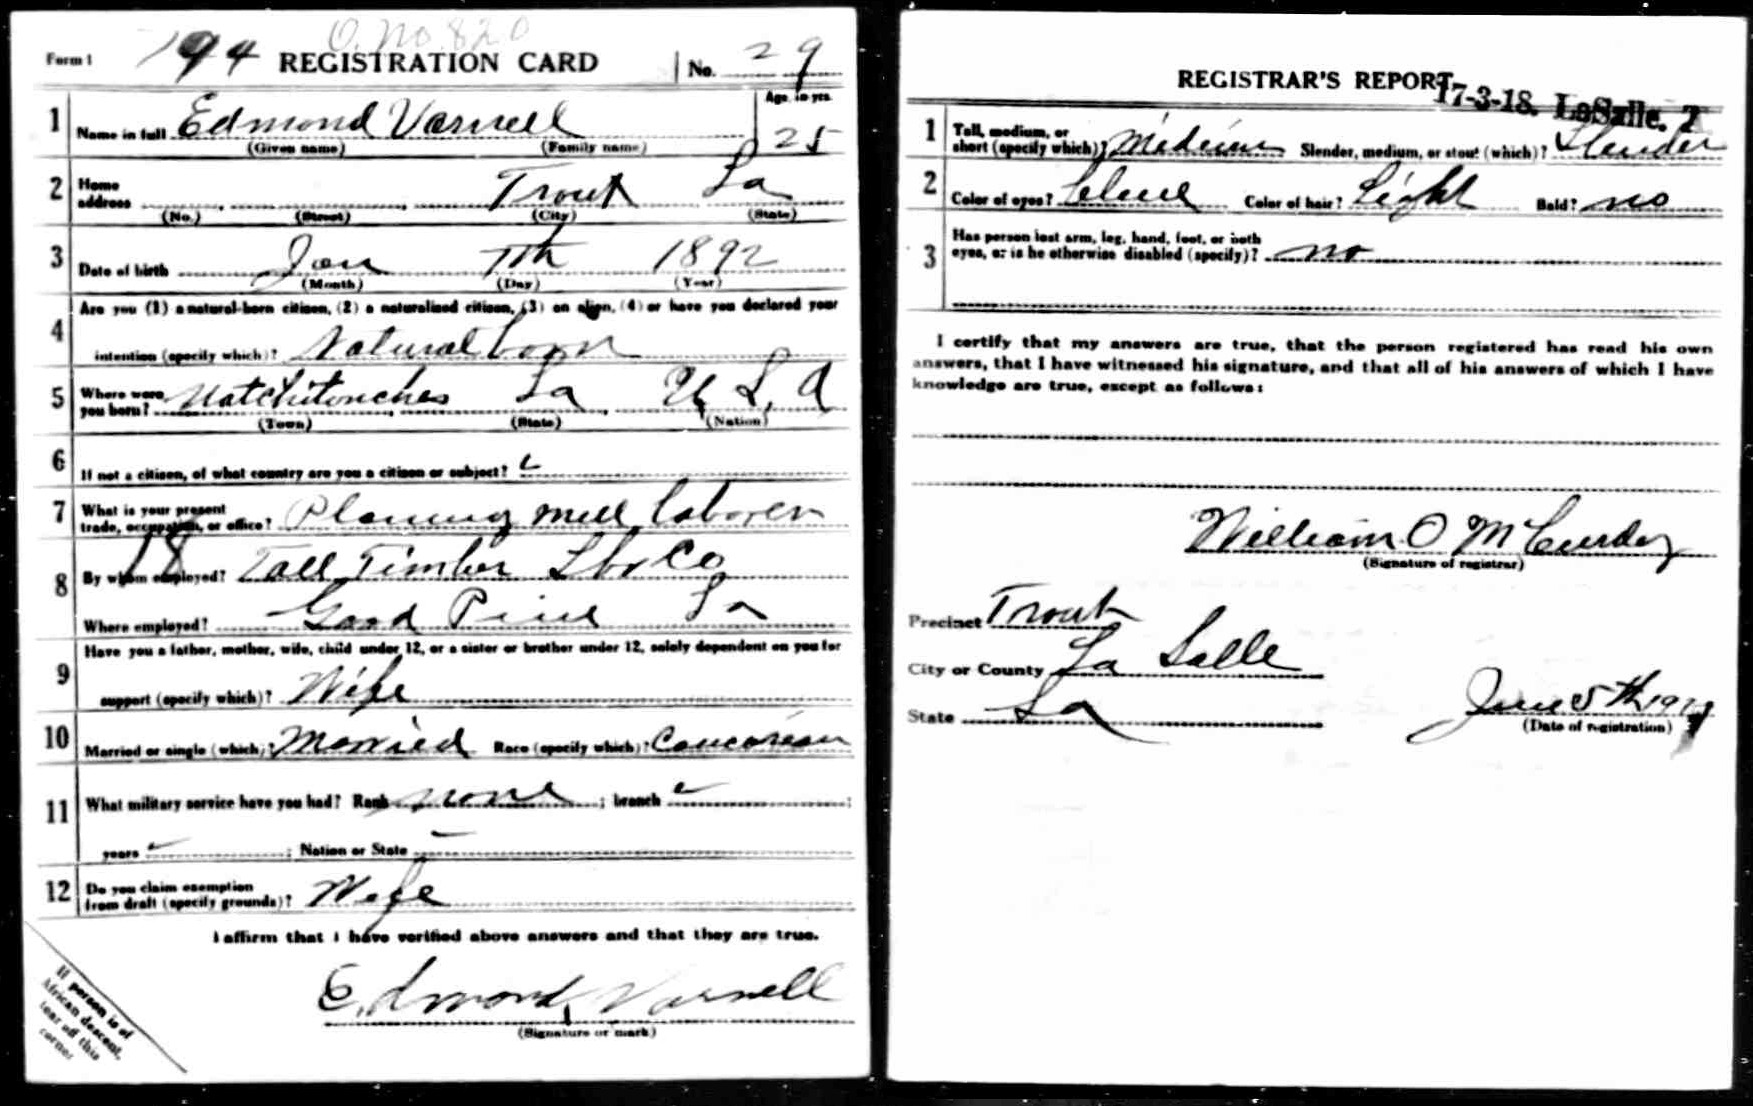 O. No. 820
Form 1 194 REGISTRATION CARD No. 29
1 Name in full Edmond Varnell Age, in yrs. 25
(Given name) (Family name)
2 Home address Trout La
(No.) (Street) (City) (State)
3 Date of birth Jan 7th 1892
(Month) (Day) (Year)
4 Are you (1) a natural-born citizen, (2) a naturalized citizen, (3) an alien, (4) or have you declared your
intention (specify which)? Natural born
5 Where were you born? Natchitouches La U S. A
(Town) (State) (Nation)
6 If not a citizen, of what country are you a citizen or subject?
7 What is your present trade, occupation, or office? Planing mill laborer
18
8 By whom employed? Tall Timber Lbr Co
Where employed? Good Pine La
9 Have you a father, mother, wife, child under 12, or a sister or brother under 12, solely dependent on you for
support (specify which)? Wife
10 Married or single (which)? Married Race (specify which)? Caucasian
11 What military service have you had? Rank none ; branch ;
years ; Nation or State
12 Do you claim exemption from draft (specify grounds)? Wife
I affirm that I have verified above answers and that they are true.
Edmond Varnell
(Signature or mark)
If person is of
African descent,
tear off this
corner
REGISTRAR'S REPORT
17-3-18. LaSalle. 2
1 Tall, medium, or short (specify which)? Medium Slender, medium, or stout (which)? Slender
2 Color of eyes? blue Color of hair? Light Bald? no
3 Has person lost arm, leg, hand, foot, or both
eyes, or is he otherwise disabled (specify)? no
I certify that my answers are true, that the person registered has read his own
answers, that I have witnessed his signature, and that all of his answers of which I have
knowledge are true, except as follows:
William O McCurdy
(Signature of registrar)
Precinct Trout
City or County La Salle
State La
June 5th 1917
(Date of registration)